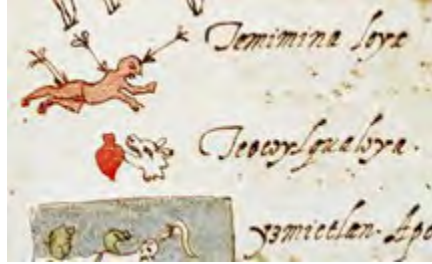 Temimina loya
Teocoylqualoya.
yzmictlan. Apo